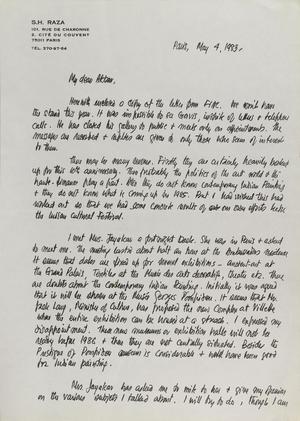 S.H. RAZA
101, RUE DE CHARONNE
2, CITE DU COUVENT
75011 PARIS
TEL. 370-97-64
Paris, May 4, 1983.
My dear Akbar,
Herewith enclosed a copy of the letter from FIAC. We won't have
the stand this year. It was impossible to see Gervis, inspite of letters + telephone
calls. He has closed his gallery to public + meets only on appointments. The
messages are recorded + replies are given to only those who seem of interest
to them.
There may be many reasons. Firstly they are certainly heavily booked
up for this 10th anniversary. Then probably the politics of the art world + the
haute finance play a part. Also they do not know contemporary Indian Painting
+ they do not know what is coming up in 1985. But I how wished this had
worked out so that we had some concrete results of our own efforts before
the Indian cultural Festival.
I met Mrs. Jayakar a fortnight back. She was in Paris + asked
to meet me. The meeting lasted about half an hour at the Ambassadors residence.
It seems that dates are fixed up for several exhibitions - ancient art at
the Grand Palais, Textiles at the Musée des arts decoratifs, theatre etc. There
are doubts about the Contemporary Indian Painting. Initially it was agreed
that it will be shown at the Musée Georges Pompidou. It seems that Mr.
Jack Lang, Minister of Culture, has proposed the new complex at Villette
where the entire exhibition can be housed at a stretch. I expressed my
disappointment. These new museums or exhibition halls will not be
ready before 1986 + then they are not centrally situated. Besides the
Prestige of Pompidou museum is considerable + would have been good
for Indian painting.
Mrs. Jayakar has asked me to write to her + give my opinion
on the various subjects I talked about. I will try to do, though I am